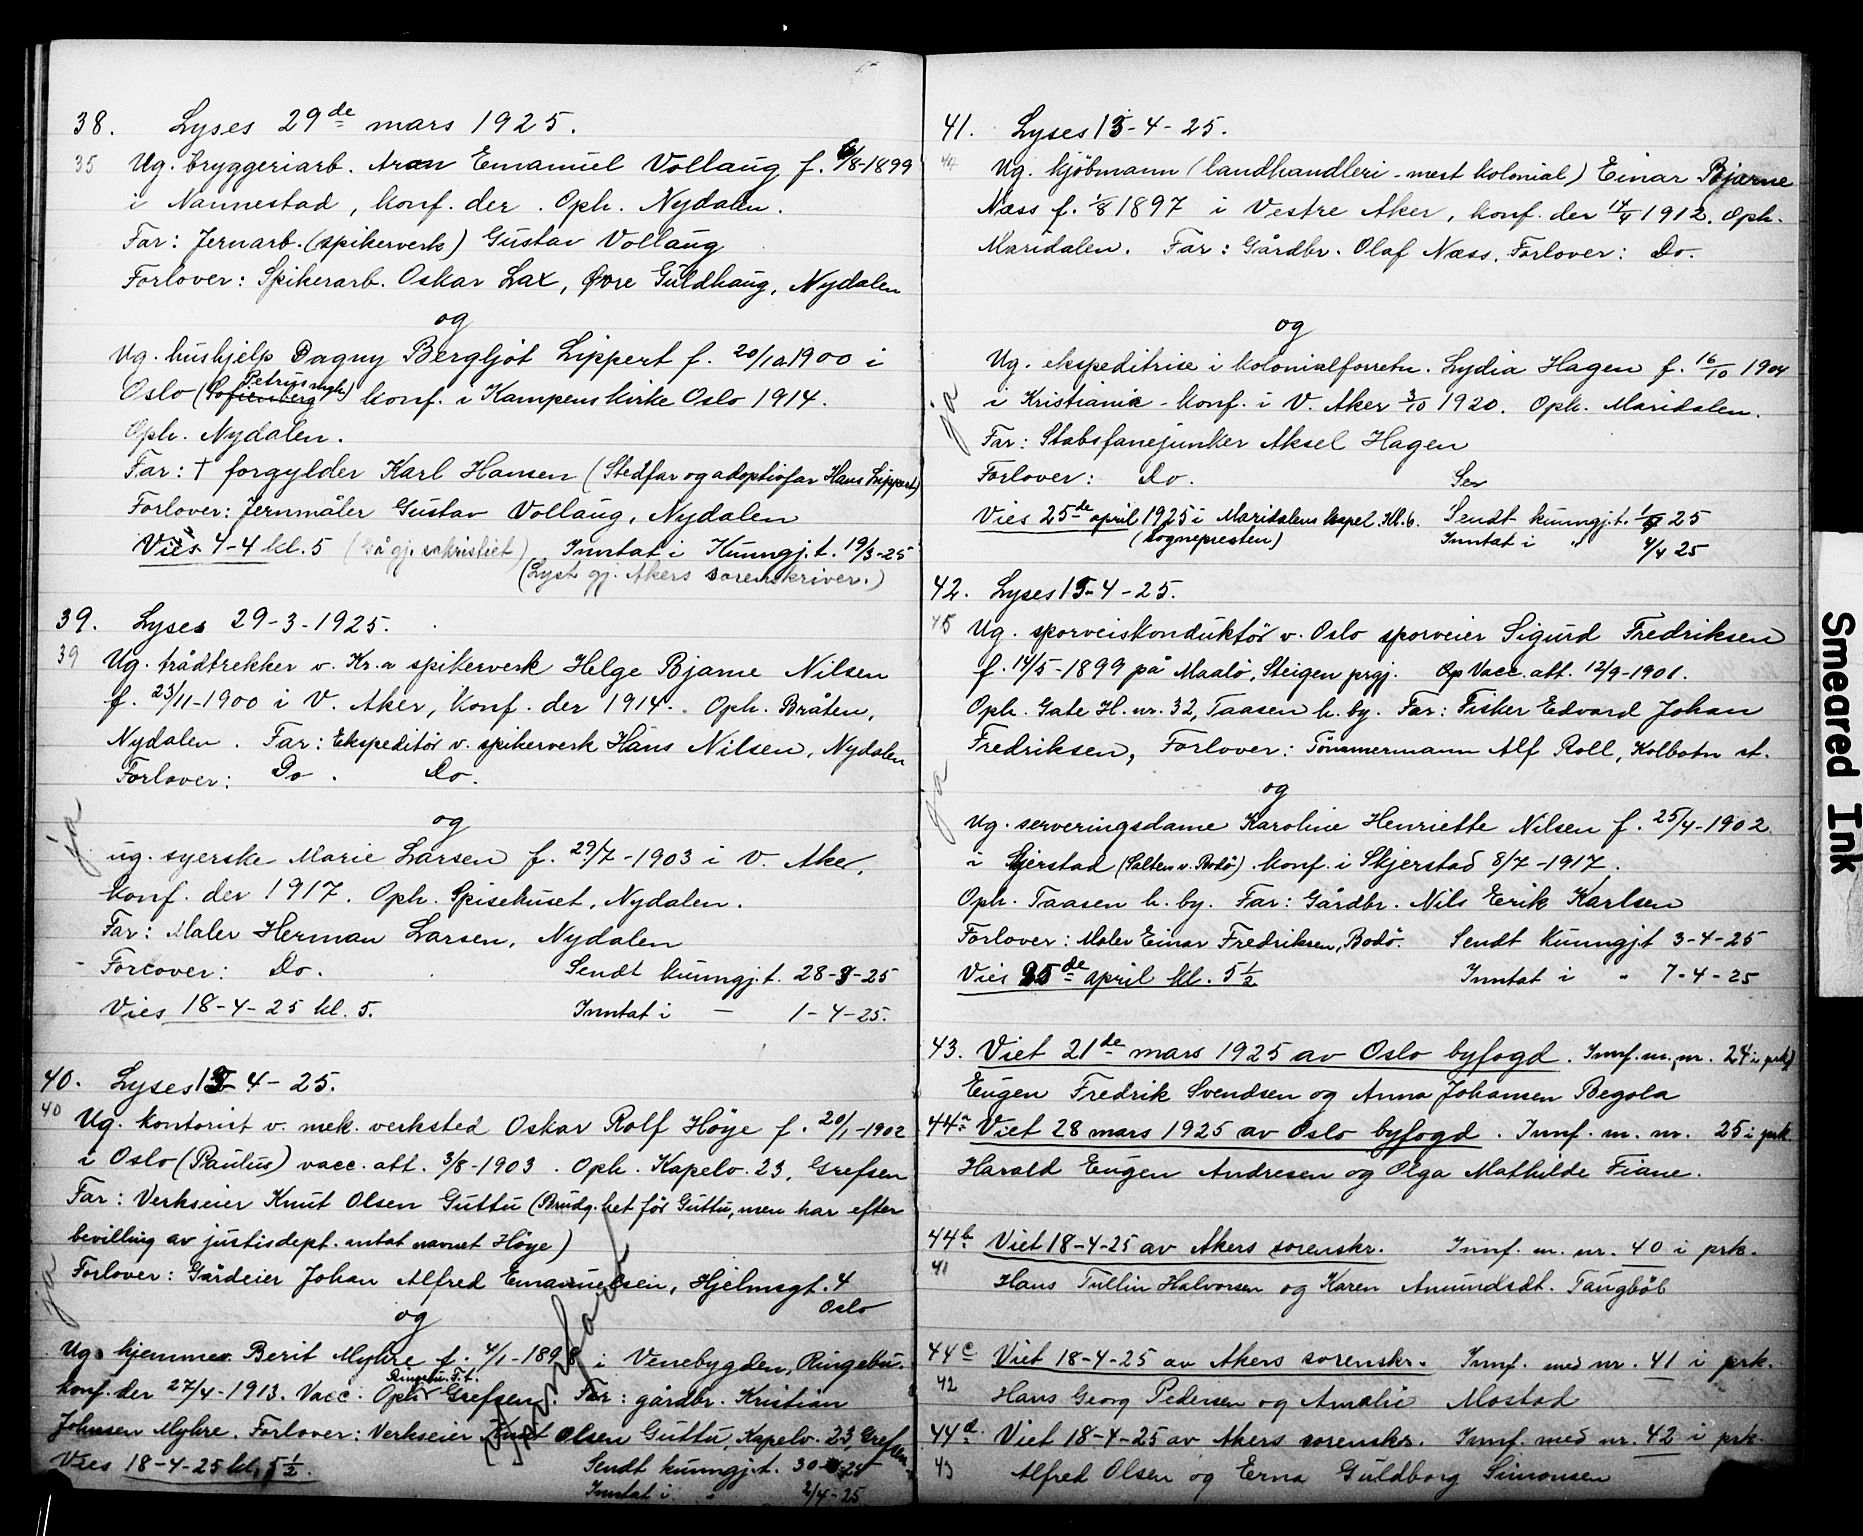 38. Lyses 29de mars 1925.
35 Ug. bryggeriarb. Aron Emanuel Vollaug f. 6/8-1899
i Nannestad, konf. der. Oph. Nydalen.
Far: Jernarb. (spikerverk) Gustav Vollaug
Forlover: Spikerarb. Oskar Lax, Øvre Guldhaug, Nydalen
og
Ug. hushjelp Dagny Bergljot Lippert f. 20/10 1900 i
Petrus mgh.
Oslo (Sofienberg) konf. i Kampens kirke Oslo 1914.
Oph. Nydalen.
Far: † forgylder Karl Hansen (Stedfar og adoptivfar Hans Lippert)
Forlover: Jernmåler Gustav Vollaug, Nydalen
Vies 4-4 kl. 5 (på gj. sakristiet) Inntat i Kunngj.t. 19/3-25
(Lyst gj. Akers sorenskriver.)
39. Lyses 29-3-1925.
39 Ug. trådtrekker v. Kr.a spikerverk Helge Bjarne Nilsen
f. 23/11-1900 i V. Aker, konf. der 1914. Oph. Bråten,
Nydalen. Far: Ekspeditör v. spikerverk Hans Nilsen, Nydalen
Forlover: Do. Do.
og
ja
ug. syerske Marie Larsen f. 29/7-1903 i V. Aker,
konf. der 1917. Oph. Spisehuset, Nydalen.
Far: Maler Herman Larsen, Nydalen
Forlover: Do. Sendt kunngj.t. 28-3-25
Vies 18-4-25 kl. 5. Inntat i — 1-4-25.
40. Lyses 13-4-25.
40 Ug. kontorist v. mek. verksted Oskar Rolf Höye f. 20/1-1902
i Oslo (Paulus) vacc. att. 3/8-1903. Oph. Kapelv. 23, Grefsen
Far: Verkseier Knut Olsen Guttu (Brudg. het för Guttu, men har efter
bevilling av justisdept. antat navnet Höye)
Forlover: Gårdeier Johan Alfred Emanuelsen, Hjelmsgt. 4
Oslo
ja
og
Ug. hjemmev. Berit Myhre f. 4/1-1898 i Venebygden, Ringebu.
Ringebu. F.t.
konf. der 27/4-1913. Vacc. Oph. Grefsen. Far: gårdbr. Kristian
Johnsen Myhre. Forlover: Verkseier Knut Olsen Guttu, Kapelv. 23, Grefsen
Vies 18-4-25 kl. 5 1/2. Sendt kunngj.t. 30-3-25
Inntat i " 2/4-25
41. Lyses 13-4-25.
44 Ug. kjöbmann (landhandleri - mest kolonial) Einar Bjarne
Næss f. 1/8 1897 i Vestre Aker, konf. der 14/4 1912. Oph.
Maridalen. Far: Gårdbr. Olaf Næss. Forlover: Do.
og
Ug. ekspeditrise i kolonialforretn. Lydia Hagen f. 16/10 1904
ja
i Kristiania - konf. i V. Aker 3/10 1920. Oph. Maridalen.
Far: Stabsfanejunker Aksel Hagen
Forlover: Do. Sen
Vies 25de april 1925 i Maridalens kapel kl. 6. Sendt kunngj.t. 1/4 25
(sognepresten) Inntat i " 4/4 25
42. Lyses 13-4-25.
45 Ug. sporveiskonduktör v. Oslo sporveier Sigurd Fredriksen
f. 14/5-1899 på Maalö, Steigen prgj. Op Vacc. att. 12/9-1901.
Oph. Gate H. nr. 32, Taasen h. by. Far: Fisker Edvard Johan
Fredriksen, Forlover: Tömmermann Alf Roll, Kolbotn st.
ja
og
Ug. serveringsdame Karoline Henriette Nilsen f. 25/4-1902
i Skjerstad (Salten v. Bodö). konf. i Skjerstad 8/7-1917.
Oph. Taasen h. by. Far: Gårdbr. Nils Erik Karlsen
Forlover: Maler Einar Fredriksen, Bodö. Sendt Kunngj.t 3-4-25
Vies 25de april kl. 5 1/2 Inntat i " 7-4-25
43. Viet 21de mars 1925 av Oslo byfogd. Innf. m. nr. 24 i prk)
Eugen Fredrik Svendsen og Anna Johansen Begola
44a Viet 28 mars 1925 av Oslo byfogd. Innf. m. nr. 25 i prk.
Harald Eugen Andresen og Olga Mathilde Fiane.
44b Viet 18-4-25 av Akers sorenskr. Innf. m. nr. 40 i prk.
41 Hans Tullin Halvorsen og Karen Amundsdt. Taugböl
44c Viet 18-4-25 av Akers sorenskr. Innf. med nr. 41 i prk.
42 Hans Georg Pedersen og Amalie Mostad
44d Viet 18-4-25 av Akers sorenskr. Innf. med nr. 42 i prk.
43 Alfred Olsen og Erna Guldborg Simonsen
Smeared Ink